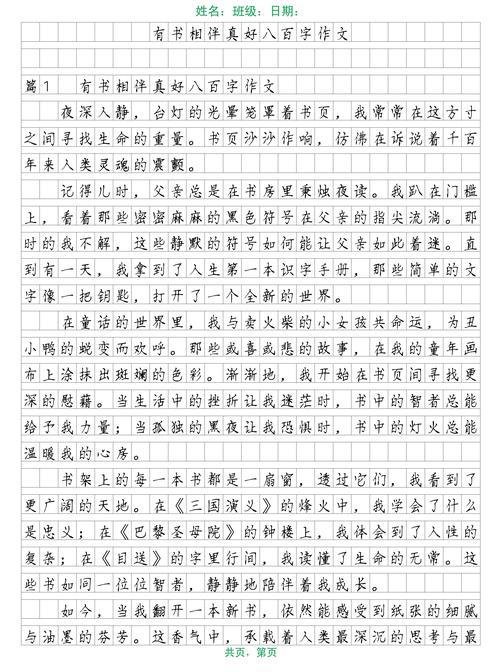 姓名：班级：日期：
有书相伴真好八百字作文
篇1　有书相伴真好八百字作文
夜深人静，台灯的光晕笼罩着书页，我常常在这方寸
之间寻找生命的重量。书页沙沙作响，仿佛在诉说着千百
年来人类灵魂的震颤。
记得儿时，父亲总是在书房里秉烛夜读。我趴在门槛
上，看着那些密密麻麻的黑色符号在父亲的指尖流淌。那
时的我不解，这些静默的符号如何能让父亲如此着迷。直
到有一天，我拿到了人生第一本识字手册，那些简单的文
字像一把钥匙，打开了一个全新的世界。
在童话的世界里，我与卖火柴的小女孩共命运，为丑
小鸭的蜕变而欢呼。那些或喜或悲的故事，在我的童年画
布上涂抹出斑斓的色彩。渐渐地，我开始在书页间寻找更
深的慰藉。当生活中的挫折让我迷茫时，书中的智者总能
给予我力量；当孤独的黑夜让我恐惧时，书中的灯火总能
温暖我的心房。
书架上的每一本书都是一扇窗，透过它们，我看到了
更广阔的天地。在《三国演义》的烽火中，我学会了什么
是忠义；在《巴黎圣母院》的钟楼上，我体会到了人性的
复杂；在《目送》的字里行间，我读懂了生命的无常。这
些书如同一位位智者，静静地陪伴着我成长。
如今，当我翻开一本新书，依然能感受到纸张的细腻
与油墨的芬芳。这香气中，承载着人类最深沉的思考与最
共页，第页